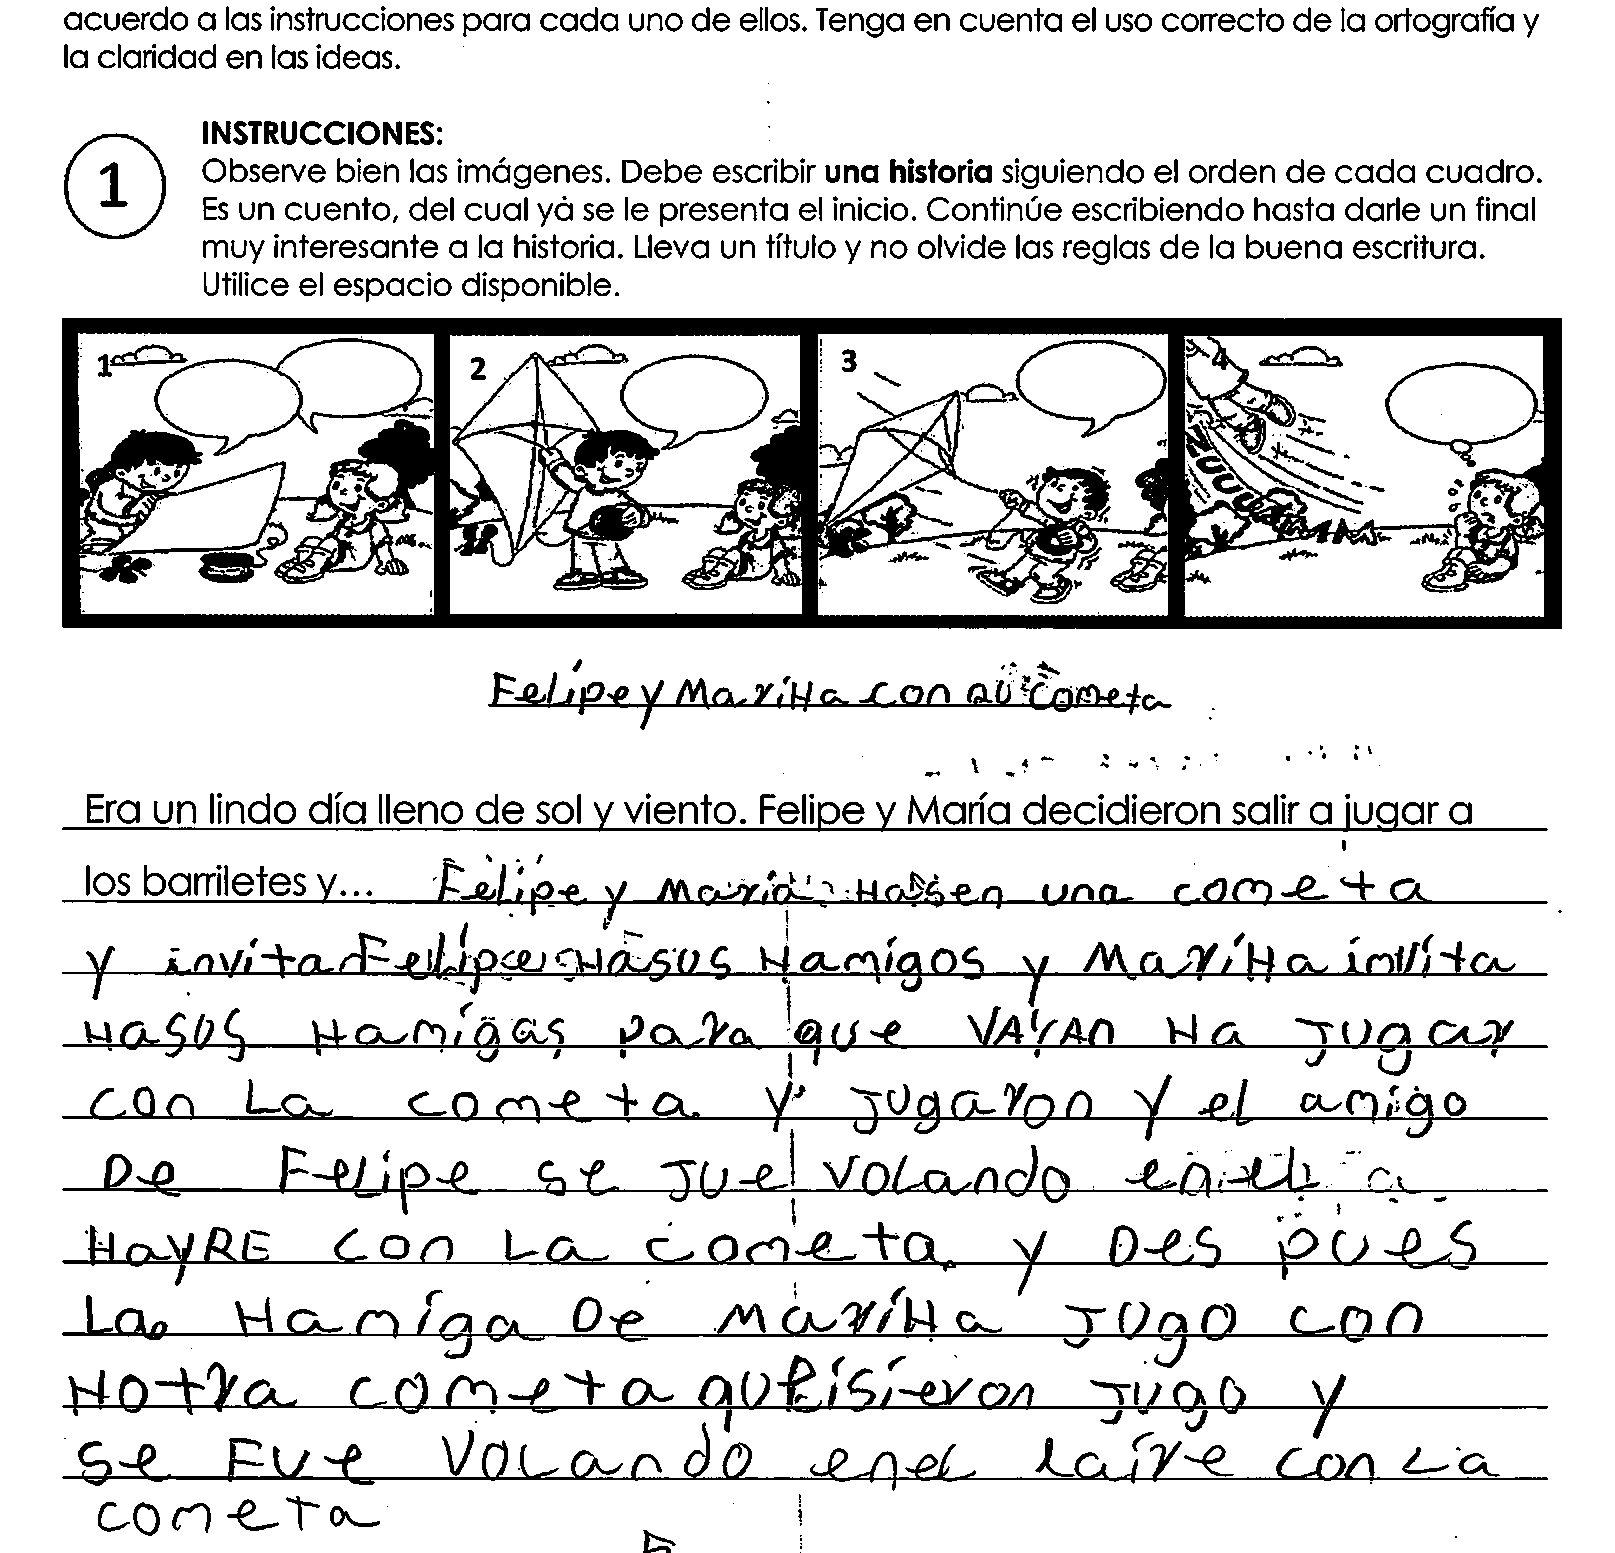 acuerdo a las instrucciones para cada uno de ellos. Tenga en cuenta el uso correcto de la ortografía y
la claridad en las ideas.
1
INSTRUCCIONES:
Observe bien las imágenes. Debe escribir una historia siguiendo el orden de cada cuadro.
Es un cuento, del cual ya se le presenta el inicio. Continúe escribiendo hasta darle un final
muy interesante a la historia. Lleva un título y no olvide las reglas de la buena escritura.
Utilice el espacio disponible.
1 2 3 4
Felipe y MariHa con su cometa
Era un lindo día lleno de sol y viento. Felipe y María decidieron salir a jugar a
los barriletes y... Felipe y Maria Hasen una cometa
y invita Felipe HaSUS Hamigos y MariHa invita
HaSUS Hamigas para que VAYAn Ha Jugar
con La cometa y Jugaron y el amigo
De Felipe se Jue VoLando enel a
HayRE con La cometa y Des pues
La Hamiga De MariHa Jugo con
Hotra cometa que isieron Jugo y
se Fue VoLando enel laire con La
cometa